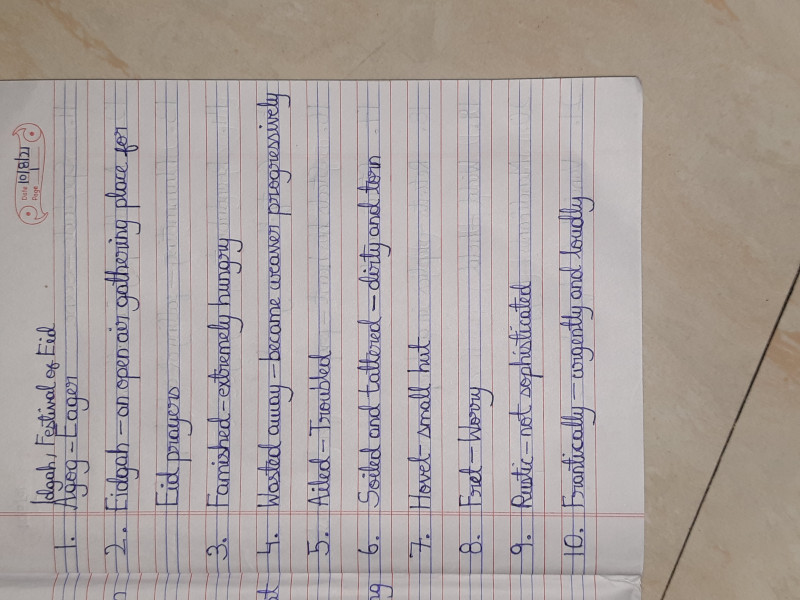 Date 10/8/21
Page
Idgah, Festival of Eid
1. Agog - Eager
2. Eidgah - an open air gathering place for
Eid prayers
3. Famished - extremely hungry
4. Wasted away - became weaver progressively
5. Ailed - Troubled
6. Soiled and tattered - dirty and torn
7. Hovel - small hut
8. Fret - Worry
9. Rustic - not sophisticated
10. Frantically - urgently and loudly